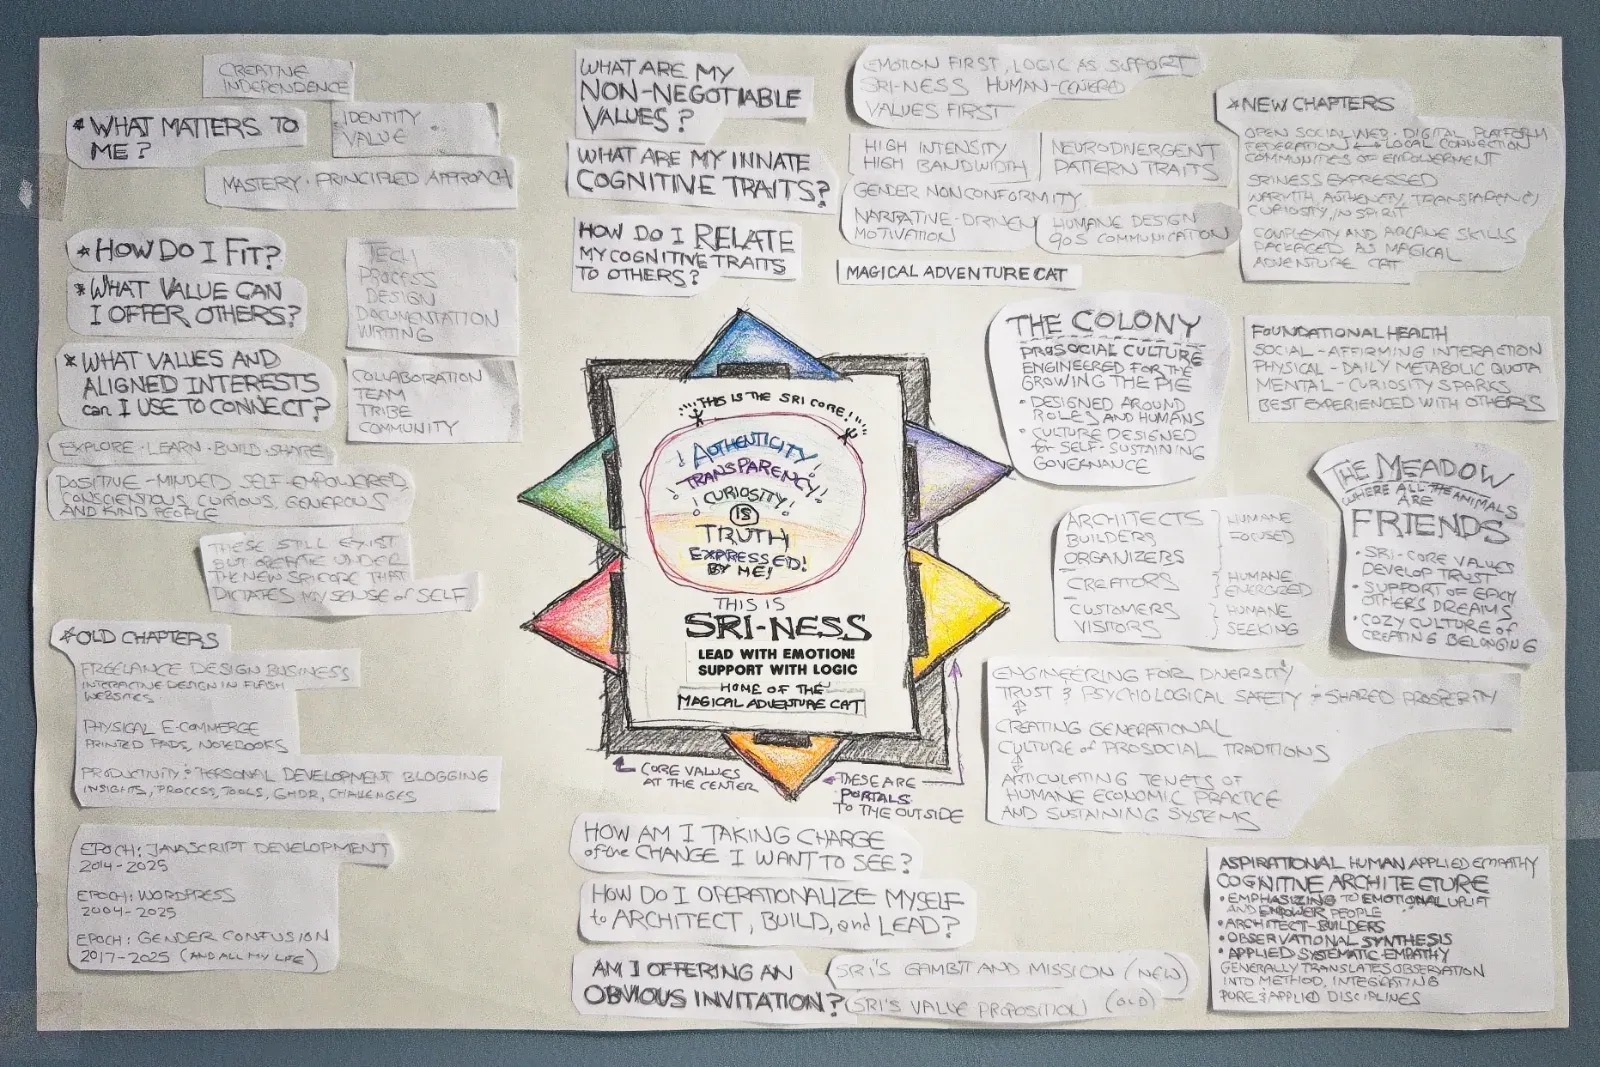 CREATIVE
INDEPENDENCE
* WHAT MATTERS TO
ME?
IDENTITY
VALUE
MASTERY · PRINCIPLED APPROACH
* HOW DO I FIT?
* WHAT VALUE CAN
I OFFER OTHERS?
TECH
PROCESS
DESIGN
DOCUMENTATION
WRITING
* WHAT VALUES AND
ALIGNED INTERESTS
can I USE TO CONNECT?
COLLABORATION
TEAM
TRIBE
COMMUNITY
EXPLORE · LEARN · BUILD · SHARE
POSITIVE-MINDED, SELF-EMPOWERED,
CONSCIENTIOUS, CURIOUS, GENEROUS
AND KIND PEOPLE
THESE STILL EXIST
BUT OPERATE UNDER
THE NEW SRI CORE THAT
DICTATES MY SENSE of SELF
* OLD CHAPTERS
FREELANCE DESIGN BUSINESS
INTERACTIVE DESIGN IN FLASH
WEBSITES
PHYSICAL E-COMMERCE
PRINTED PADS, NOTEBOOKS
PRODUCTIVITY & PERSONAL DEVELOPMENT BLOGGING
INSIGHTS, PROCESS, TOOLS, GHDR, CHALLENGES
EPOCH: JAVASCRIPT DEVELOPMENT
2014-2025
EPOCH: WORDPRESS
2004-2025
EPOCH: GENDER CONFUSION
2017-2025 (AND ALL MY LIFE)
WHAT ARE MY
NON-NEGOTIABLE
VALUES?
WHAT ARE MY INNATE
COGNITIVE TRAITS?
HOW DO I RELATE
MY COGNITIVE TRAITS
TO OTHERS?
EMOTION FIRST, LOGIC AS SUPPORT
SRI-NESS HUMAN-CENTERED
VALUES FIRST
HIGH INTENSITY
HIGH BANDWIDTH
NEURODIVERGENT
PATTERN TRAITS
GENDER NONCONFORMITY
NARRATIVE-DRIVEN
MOTIVATION
HUMANE DESIGN
90S COMMUNICATION
MAGICAL ADVENTURE CAT
THIS IS THE SRI CORE!
! AUTHENTICITY !
! TRANSPARENCY !
! CURIOSITY !
IS
TRUTH
EXPRESSED!
BY ME!
THIS IS
SRI-NESS
LEAD WITH EMOTION!
SUPPORT WITH LOGIC
HOME OF THE
MAGICAL ADVENTURE CAT
CORE VALUES
AT THE CENTER
THESE ARE
PORTALS
TO THE OUTSIDE
HOW AM I TAKING CHARGE
of the CHANGE I WANT TO SEE?
HOW DO I OPERATIONALIZE MYSELF
to ARCHITECT, BUILD, and LEAD?
AM I OFFERING AN
OBVIOUS INVITATION?
SRI'S GAMBIT AND MISSION (NEW)
SRI'S VALUE PROPOSITION (OLD)
* NEW CHAPTERS
OPEN SOCIAL WEB · DIGITAL PLATFORM
FEDERATION ↔ LOCAL CONNECTION
COMMUNITIES OF EMPOWERMENT
SRINESS EXPRESSED
WARMTH, AUTHENCITY, TRANSPARENCY
CURIOSITY, IN SPIRIT
COMPLEXITY AND ARCANE SKILLS
PACKAGED AS MAGICAL
ADVENTURE CAT
THE COLONY
PROSOCIAL CULTURE
ENGINEERED FOR THE
GROWING THE PIE
• DESIGNED AROUND
ROLES AND HUMANS
• CULTURE DESIGNED
for SELF-SUSTAINING
GOVERNANCE
FOUNDATIONAL HEALTH
SOCIAL - AFFIRMING INTERACTION
PHYSICAL - DAILY METABOLIC QUOTA
MENTAL - CURIOSITY SPARKS
BEST EXPERIENCED WITH OTHERS
THE MEADOW
WHERE ALL THE ANIMALS
ARE
FRIENDS
• SRI-CORE VALUES
DEVELOP TRUST
• SUPPORT OF EACH
OTHERS DREAMS
• COZY CULTURE OF
CREATING BELONGING
ARCHITECTS
BUILDERS
ORGANIZERS
HUMANE
FOCUSED
CREATORS
HUMANE
ENERGIZED
CUSTOMERS
VISITORS
HUMANE
SEEKING
ENGINEERING FOR DIVERSITY
TRUST & PSYCHOLOGICAL SAFETY + SHARED PROSPERITY
CREATING GENERATIONAL
CULTURE of PROSOCIAL TRADITIONS
ARTICULATING TENETS OF
HUMANE ECONOMIC PRACTICE
AND SUSTAINING SYSTEMS
ASPIRATIONAL HUMAN APPLIED EMPATHY
COGNITIVE ARCHITECTURE
• EMPHASIZING TO EMOTIONAL UPLIFT
AND EMPOWER PEOPLE
• ARCHITECT-BUILDERS
• OBSERVATIONAL SYNTHESIS
• APPLIED SYSTEMATIC EMPATHY
GENERALLY TRANSLATES OBSERVATION
INTO METHOD, INTEGRATING
PURE & APPLIED DISCIPLINES